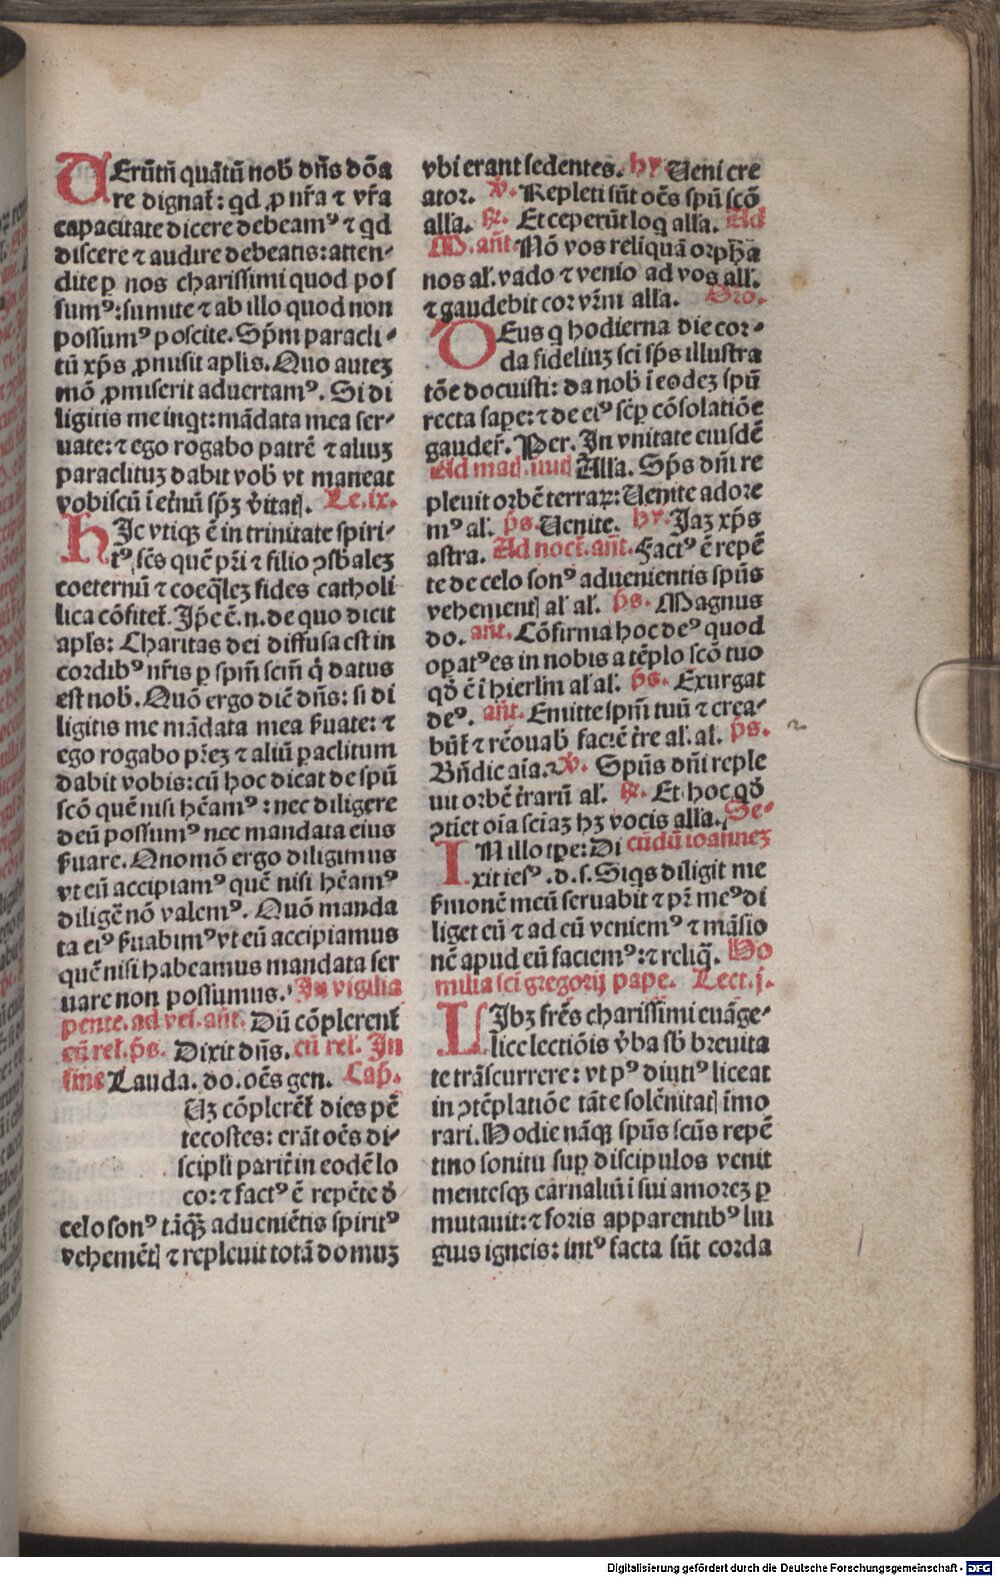 UErūtñ quãtũ nob̃ dñs dõa
re dignaṫ: qđ ꝓ nr̃a ⁊ vr̃a
capacitate dicere debeamꝰ ⁊ qđ
discere ⁊ audire debeatis: atten-
dite ꝑ nos charissimi quod pos
sumꝰ: sumite ⁊ ab illo quod non
possumꝰ poscite. Sp̃m paracli-
tũ xp̃s ꝓmisit aplis. Quo autez
mõ ꝓmiserit advertamꝰ. Si di
ligitis me inqt: mãdata mea ser-
uate: ⁊ ego rogabo patrẽ ⁊ aliuz
paraclituz dabit vob̃ vt maneat
vobiscũ ĩ eṫnũ sp̃z ṽitatꝭ. Le. ix.
HJc vtiqꝫ ẽ in trinitate spiri-
tꝰ sc̃s quẽ pr̃i ⁊ filio ꝯsb̃alez
coeternũ ⁊ coeq̃lez fides catholi
lica cõfiteṫ. Jp̃e ẽ. n. de quo dicit
apl̃s: Charitas dei diffusa est in
cordibꝰ nr̃is ꝑ spm̃ scm̃ q̃ datus
est nob̃. Quõ ergo dic̃ dñs: si di
ligitis me mãdata mea ẜuate: ⁊
ego rogabo pr̃ez ⁊ aliũ ꝑaclitum
dabit vobis: cũ hoc dicat de spũ
scõ quẽ nisi hẽamꝰ: nec diligere
deũ possumꝰ nec mandata eius
ẜuare. Quomõ ergo diligimus
vt eũ accipiamꝰ quẽ nisi hẽamꝰ
diligẽ nõ valemꝰ. Quõ manda
ta eiꝰ ẜuabimꝰ vt eũ accipiamus
quẽ nisi habeamus mandata ser
uare non possumus. In vigilia
pente. ad ves. añt. Dũ cõplerenṫ
cũ rel. p̃s. Dixit dñs. cũ rel. In
fine Lauda. do. oẽs gen. Cap̃.
Uz cõplerẽṫ dies pẽ
tecostes: erãt oẽs di-
scipli pariṫ in eodẽ lo
co: ⁊ factꝰ ẽ repẽte đ
celo sonꝰ tãqꝫ̃ adueniẽtis spiritꝰ
vehemẽtꝭ ⁊ repleuit totã domuz
vbi erant sedentes. hy. Ueni cre
ator. v̇. Repleti sũt oẽs spũ scõ
alĺa. ꝶ. Et ceperũt loq alĺa. Ad
M. añt. Nõ vos reliquã orpha
nos al. vado ⁊ venio ad vos all.
⁊ gaudebit cor vr̃m alĺa. Oro.
DEus q hodierna die cor-
da fideliuz sci sp̃s illustra
tõe docuisti: da nob̃ ĩ eodez spũ
recta sape: ⁊ de eiꝰ sẽꝑ cõsolatiõe
gauder̃. Per. In vnitate eiusdẽ
Ad matꝭ. inuitꝭ Alĺa. Sp̃s dñi re
pleuit orbẽ terraꝝ: Uenite adore
mꝰ al. p̃s. Uenite. hy. Jaz xp̃s
astra. Ad nocṫ. añt. Factꝰ ẽ repẽ
te de celo sonꝰ aduenientis spũs
vehementꝭ al al. p̃s. Magnus
do. añt. Cõfirma hoc deꝰ quod
oꝑatꝰ es in nobis a tẽplo scõ tuo
qđ ẽ ĩ hierlm̃ al al. p̃s. Exurgat
deꝰ. añt. Emitte spm̃ tuũ ⁊ crea-
bũṫ ⁊ rẽouab̃ faciẽ ṫre al. al. p̃s.
Bñdic aĩa. v̇. Spũs dñi reple
uit orbẽ ṫrarũ al. ꝶ. Et hoc qđ
ꝯtiet oĩa sciaz hz vocis alĺa. Se-
cũdũ ioannez
IN illo tꝑe: Di
xit iesꝰ .d. s. Siqs diligit me
ẜmonẽ meũ seruabit ⁊ pr̃ meꝰ di
liget eũ ⁊ ad eũ veniemꝰ ⁊ mãsio
nẽ apud eũ faciemꝰ: ⁊ reliq̃. Ho
milia sci gregorij pape. Lect. j.
LIbz frẽs charissimi euãge-
lice lectiõis ṽba sb̃ breuita
te trãscurrere: vt pꝰ diutiꝰ liceat
in ꝯtẽplatiõe tãte solẽnitatꝭ ĩmo
rari. Hodie nãqꝫ spũs scũs repẽ
tino sonitu suꝑ discipulos venit
mentesqꝫ carnaliũ ĩ sui amorez ꝑ
mutauit: ⁊ foris apparentibꝰ lin
guis igneis: intꝰ facta sũt corda
Digitalisierung gefördert durch die Deutsche Forschungsgemeinschaft - DFG